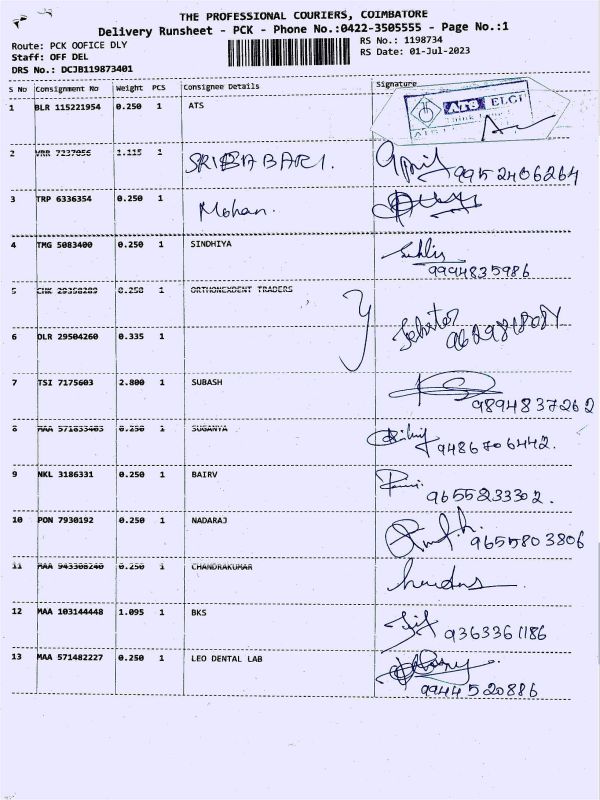 THE PROFESSIONAL COURIERS, COIMBATORE
Delivery Runsheet - PCK - Phone No.:0422-3505555 - Page No.:1
Route: PCK OOFICE DLY RS No.: 1198734
Staff: OFF DEL RS Date: 01-Jul-2023
DRS No.: DCJB119873401
S No Consignment No Weight PCS Consignee Details Signature
1 BLR 115221954 0.250 1 ATS
ATS ELGI
2 VRR 7237056 1.115 1 SRIBABARI. 9952406264
3 TRP 6336354 0.250 1 Mohan.
4 TMG 5083400 0.250 1 SINDHIYA
9994835986
5 CHK 29358289 0.250 1 ORTHONEXDENT TRADERS
6 DLR 29504260 0.335 1
7 TSI 7175603 2.800 1 SUBASH
9894837262
8 MAA 571833403 0.250 1 SUGANYA 9486706442.
9 NKL 3186331 0.250 1 BAIRV
9655833302.
10 PON 7930192 0.250 1 NADARAJ
9655803806
11 MAA 943308240 0.250 1 CHANDRAKUMAR
12 MAA 103144448 1.095 1 BKS 9363361186
13 MAA 571482227 0.250 1 LEO DENTAL LAB
9944520886